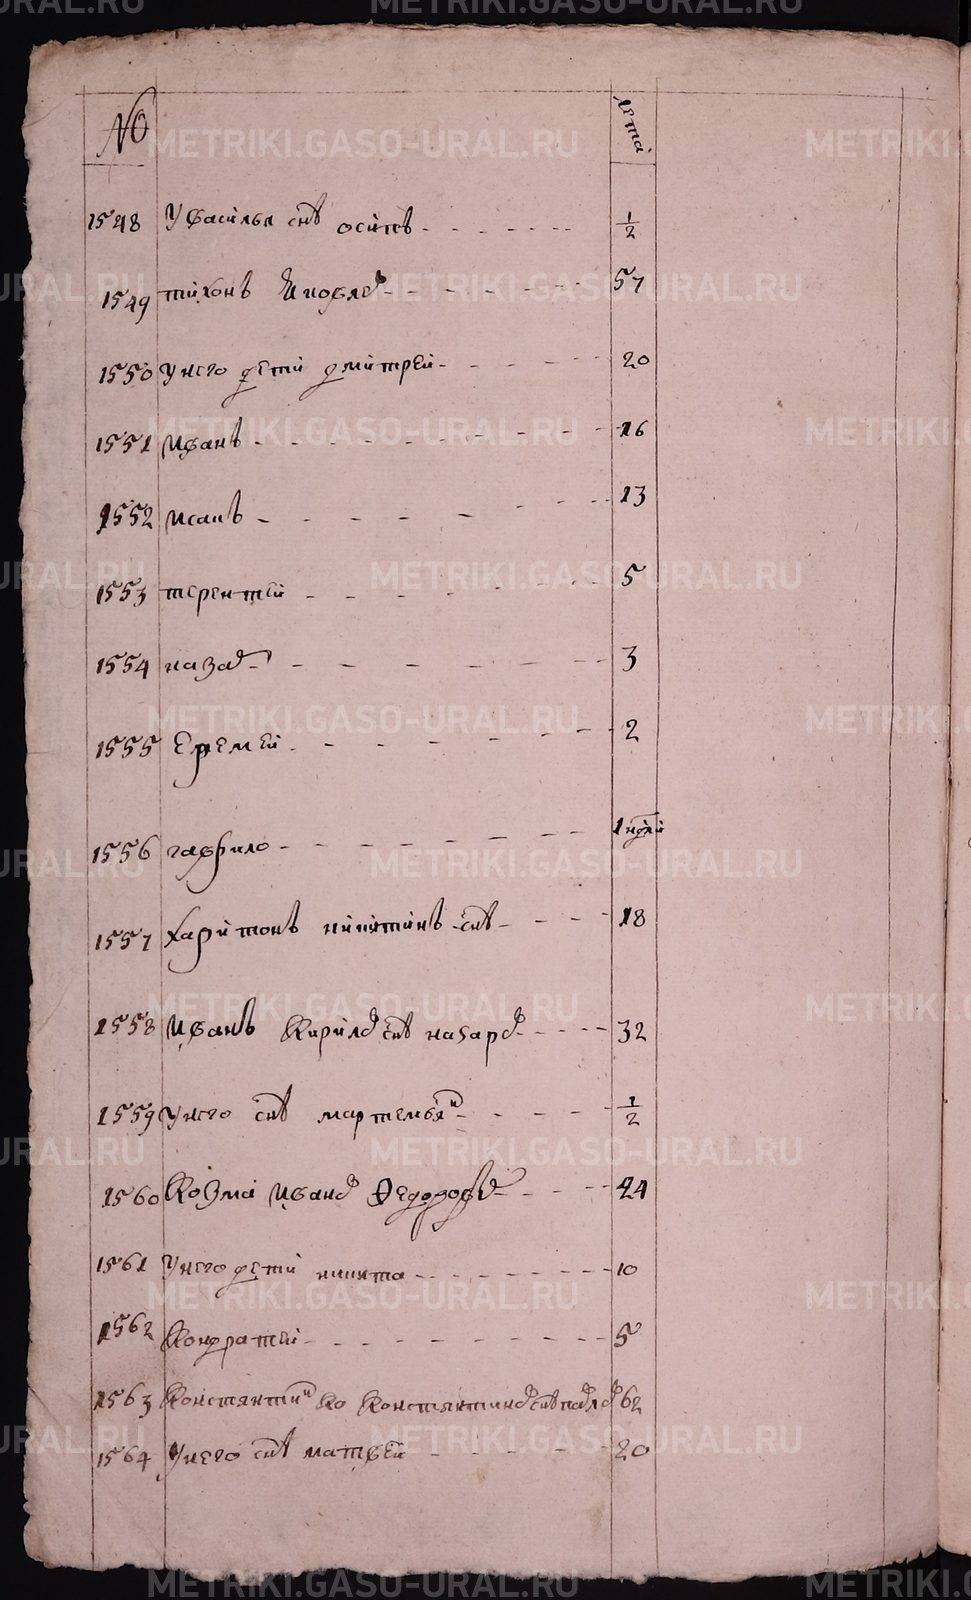 № лета
1548 У василья снъ осипъ 1/2
1549 тихонъ Яковлев 57
1550 у него дети дмитрей 20
1551 иванъ 16
1552 исакъ 13
1553 терентей 5
1554 назар 3
1555 Еремей 2
1556 гаврило 1 недели
1557 харитонъ никитинъ снъ 18
1558 иванъ Кирилов снъ назаров 32
1559 у него снъ мартемьян 1/2
1560 Козма иванов Федоров 44
1561 У него дети никита 10
1562 Кондратей 5
1563 Константин Константинов снъ 62
1564 У него снъ матвей 20
METRIKI.GASO-URAL.RU